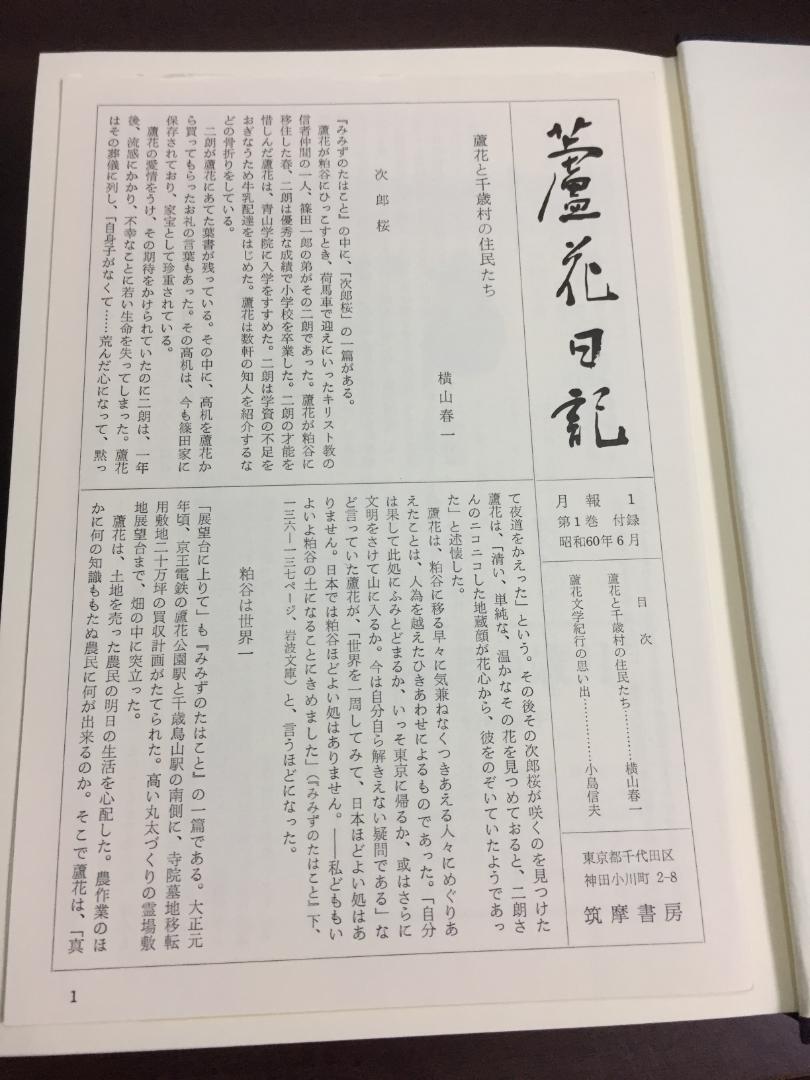 蘆花日記
月報 1
第1巻 付録
昭和60年6月
目次
蘆花と千歳村の住民たち…………横山春一
蘆花文学紀行の思い出……………小島信夫
東京都千代田区
神田小川町 2-8
筑摩書房
蘆花と千歳村の住民たち
横山春一
次郎桜
『みみずのたはこと』の中に、「次郎桜」の一篇がある。
蘆花が粕谷にひっこすとき、荷馬車で迎えにいったキリスト教の
信者仲間の一人、篠田一郎の弟がその二朗であった。蘆花が粕谷に
移住した春、二朗は優秀な成績で小学校を卒業した。二朗の才能を
惜しんだ蘆花は、青山学院に入学をすすめた。二朗は学資の不足を
おぎなうため牛乳配達をはじめた。蘆花は数軒の知人を紹介するな
どの骨折りをしている。
二朗が蘆花にあてた葉書が残っている。その中に、高机を蘆花か
ら買ってもらったお礼の言葉もあった。その高机は、今も篠田家に
保存されており、家宝として珍重されている。
蘆花の愛情をうけ、その期待をかけられていたのに二朗は、一年
後、流感にかかり、不幸なことに若い生命を失ってしまった。蘆花
はその葬儀に列し、「自身子がなくて……荒んだ心になって、黙っ
て夜道をかえった」という。その後その次郎桜が咲くのを見つけた
蘆花は、「清い、単純な、温かなその花を見つめておると、二朗さ
んのニコニコした地蔵顔が花心から、彼をのぞいていたようであっ
た」と述懐した。
蘆花は、粕谷に移る早々に気兼ねなくつきあえる人々にめぐりあ
えたことは、人為を越えたひきあわせによるものであった。「自分
は果して此処にふみとどまるか、いっそ東京に帰るか、或はさらに
文明をさけて山に入るか。今は自分自ら解きえない疑問である」な
ど言っていた蘆花が、「世界を一周してみて、日本ほどよい処はあ
りません。日本では粕谷ほどよい処はありません。――私どももい
よいよ粕谷の土になることにきめました」(『みみずのたはこと』下、
一三六―一三七ページ、岩波文庫)と、言うほどになった。
粕谷は世界一
「展望台に上りて」も『みみずのたはこと』の一篇である。大正元
年頃、京王電鉄の蘆花公園駅と千歳烏山駅の南側に、寺院墓地移転
用敷地二十万坪の買収計画がたてられた。高い丸太づくりの霊場敷
地展望台まで、畑の中に突立った。
蘆花は、土地を売った農民の明日の生活を心配した。農作業のほ
かに何の知識ももたぬ農民に何が出来るのか。そこで蘆花は、「真
1